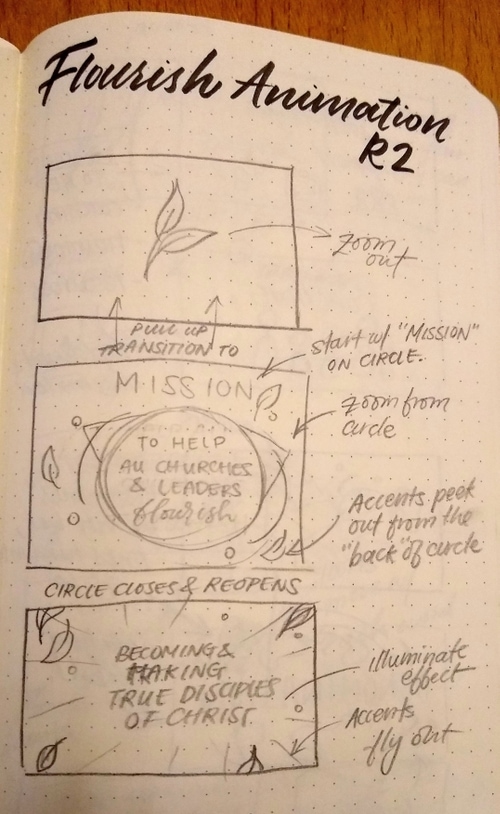 Flourish Animation
R2
Zoom
out
PULL UP
TRANSITION TO
start w/ "MISSION"
ON CIRCLE.
MISSION
Zoom from
circle
TO HELP
ALL CHURCHES
& LEADERS
flourish
Accents peek
out from the
"back" of circle
CIRCLE CLOSES & REOPENS
BECOMING &
MAKING
TRUE DISCIPLES
OF CHRIST.
illuminate
effect
Accents
fly out